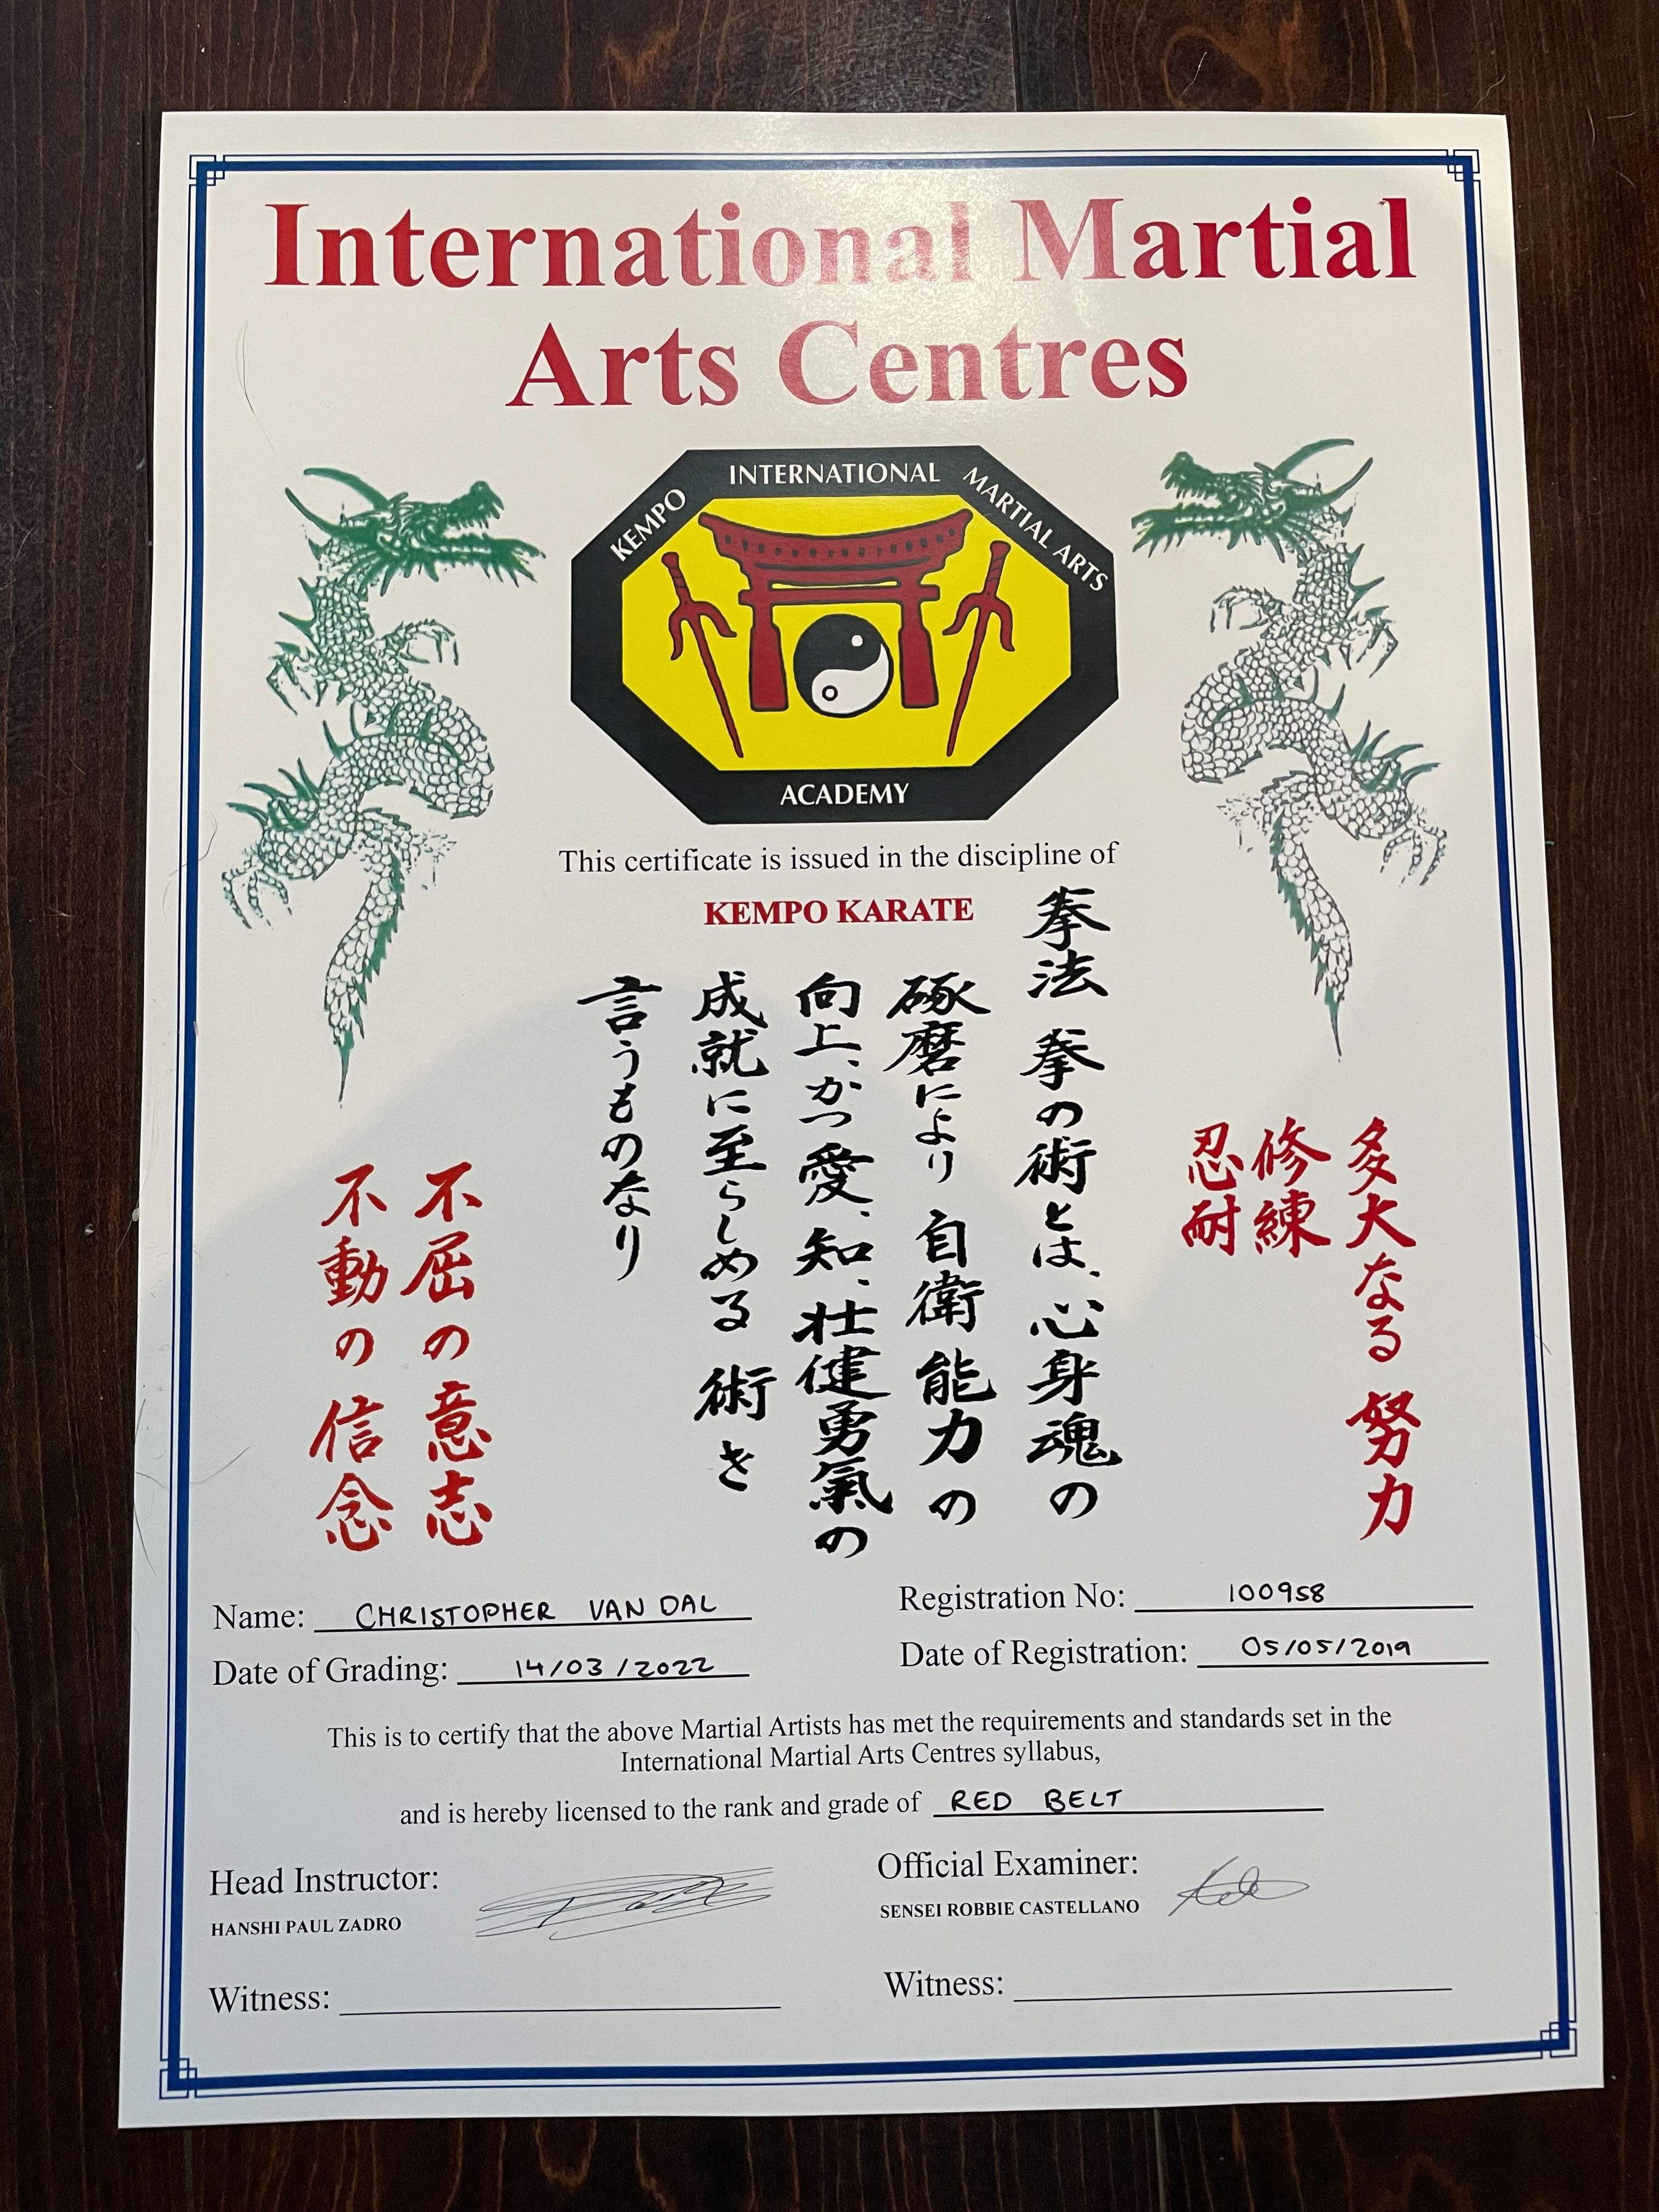 International Martial
Arts Centres
KEMPO INTERNATIONAL MARTIAL ARTS
ACADEMY
This certificate is issued in the discipline of
KEMPO KARATE
拳法 拳の術とは、心身魂の
琢磨により 自衛能力の
向上、かつ愛、知、壮健勇氣の
成就に至らしめる 術き
言うものなり
多大なる 努力
修練
忍耐
不屈の意志
不動の信念
Name: CHRISTOPHER VAN DAL
Registration No: 100958
Date of Grading: 14/03/2022
Date of Registration: 05/05/2019
This is to certify that the above Martial Artists has met the requirements and standards set in the
International Martial Arts Centres syllabus,
and is hereby licensed to the rank and grade of RED BELT
Head Instructor:
HANSHI PAUL ZADRO
Official Examiner:
SENSEI ROBBIE CASTELLANO
Witness:
Witness: